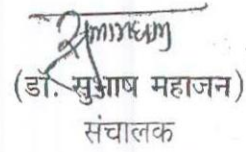 (डॉ. सुभाष महाजन)
संचालक